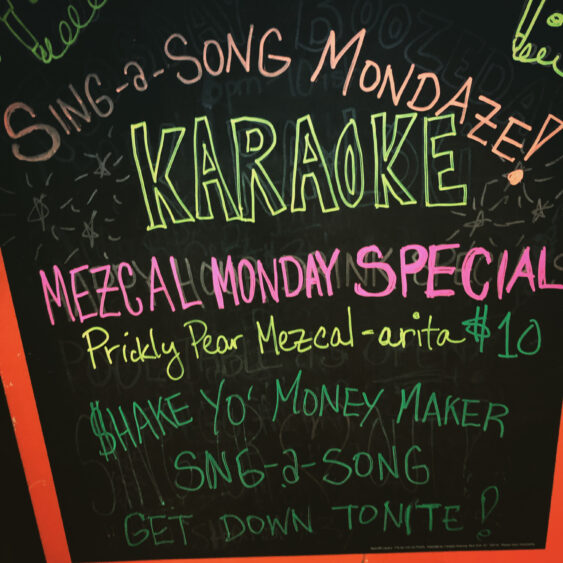 SING-a-SONG MONDAZE!
KARAOKE
MEZCAL MONDAY SPECIAL
Prickly Pear Mezcal-arita $10
$HAKE YO' MONEY MAKER
SNG-a-SONG
GET DOWN TONITE!